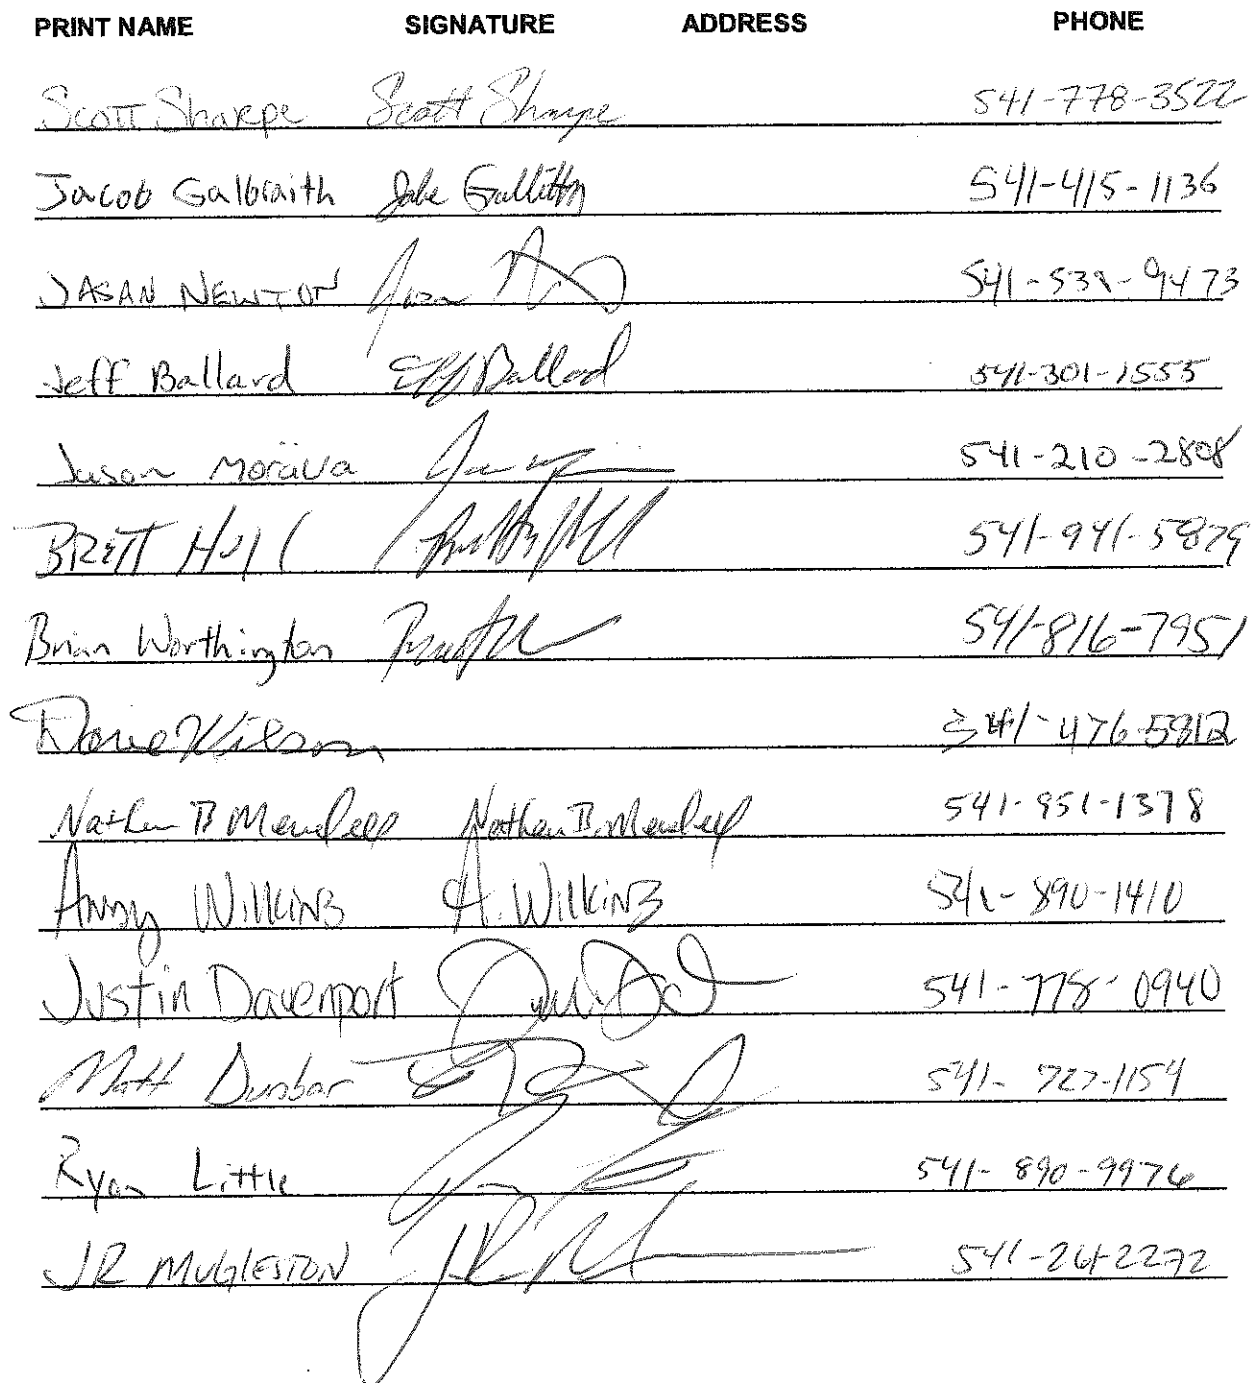 PRINT NAME SIGNATURE ADDRESS PHONE
Scott Sharpe Scott Sharpe 541-778-3522
Jacob Galbraith Jake 541-415-1136
JASAN NEWTON 541-538-9473
Jeff Ballard Jeff Ballard 541-301-1555
Jason Morava 541-210-2808
BRETT Hull 541-941-5879
Brian Worthington 541-816-7951
Dave Wilson 541-476-5812
Nathan B Mendell Nathan B. Mendell 541-951-1378
Andy WilkinS A. WilkinS 541-890-1410
Justin Davenport 541-778-0940
Matt Dunbar 541-727-1154
Ryan Little 541-890-9976
JR MuglESTON 541-261-2272